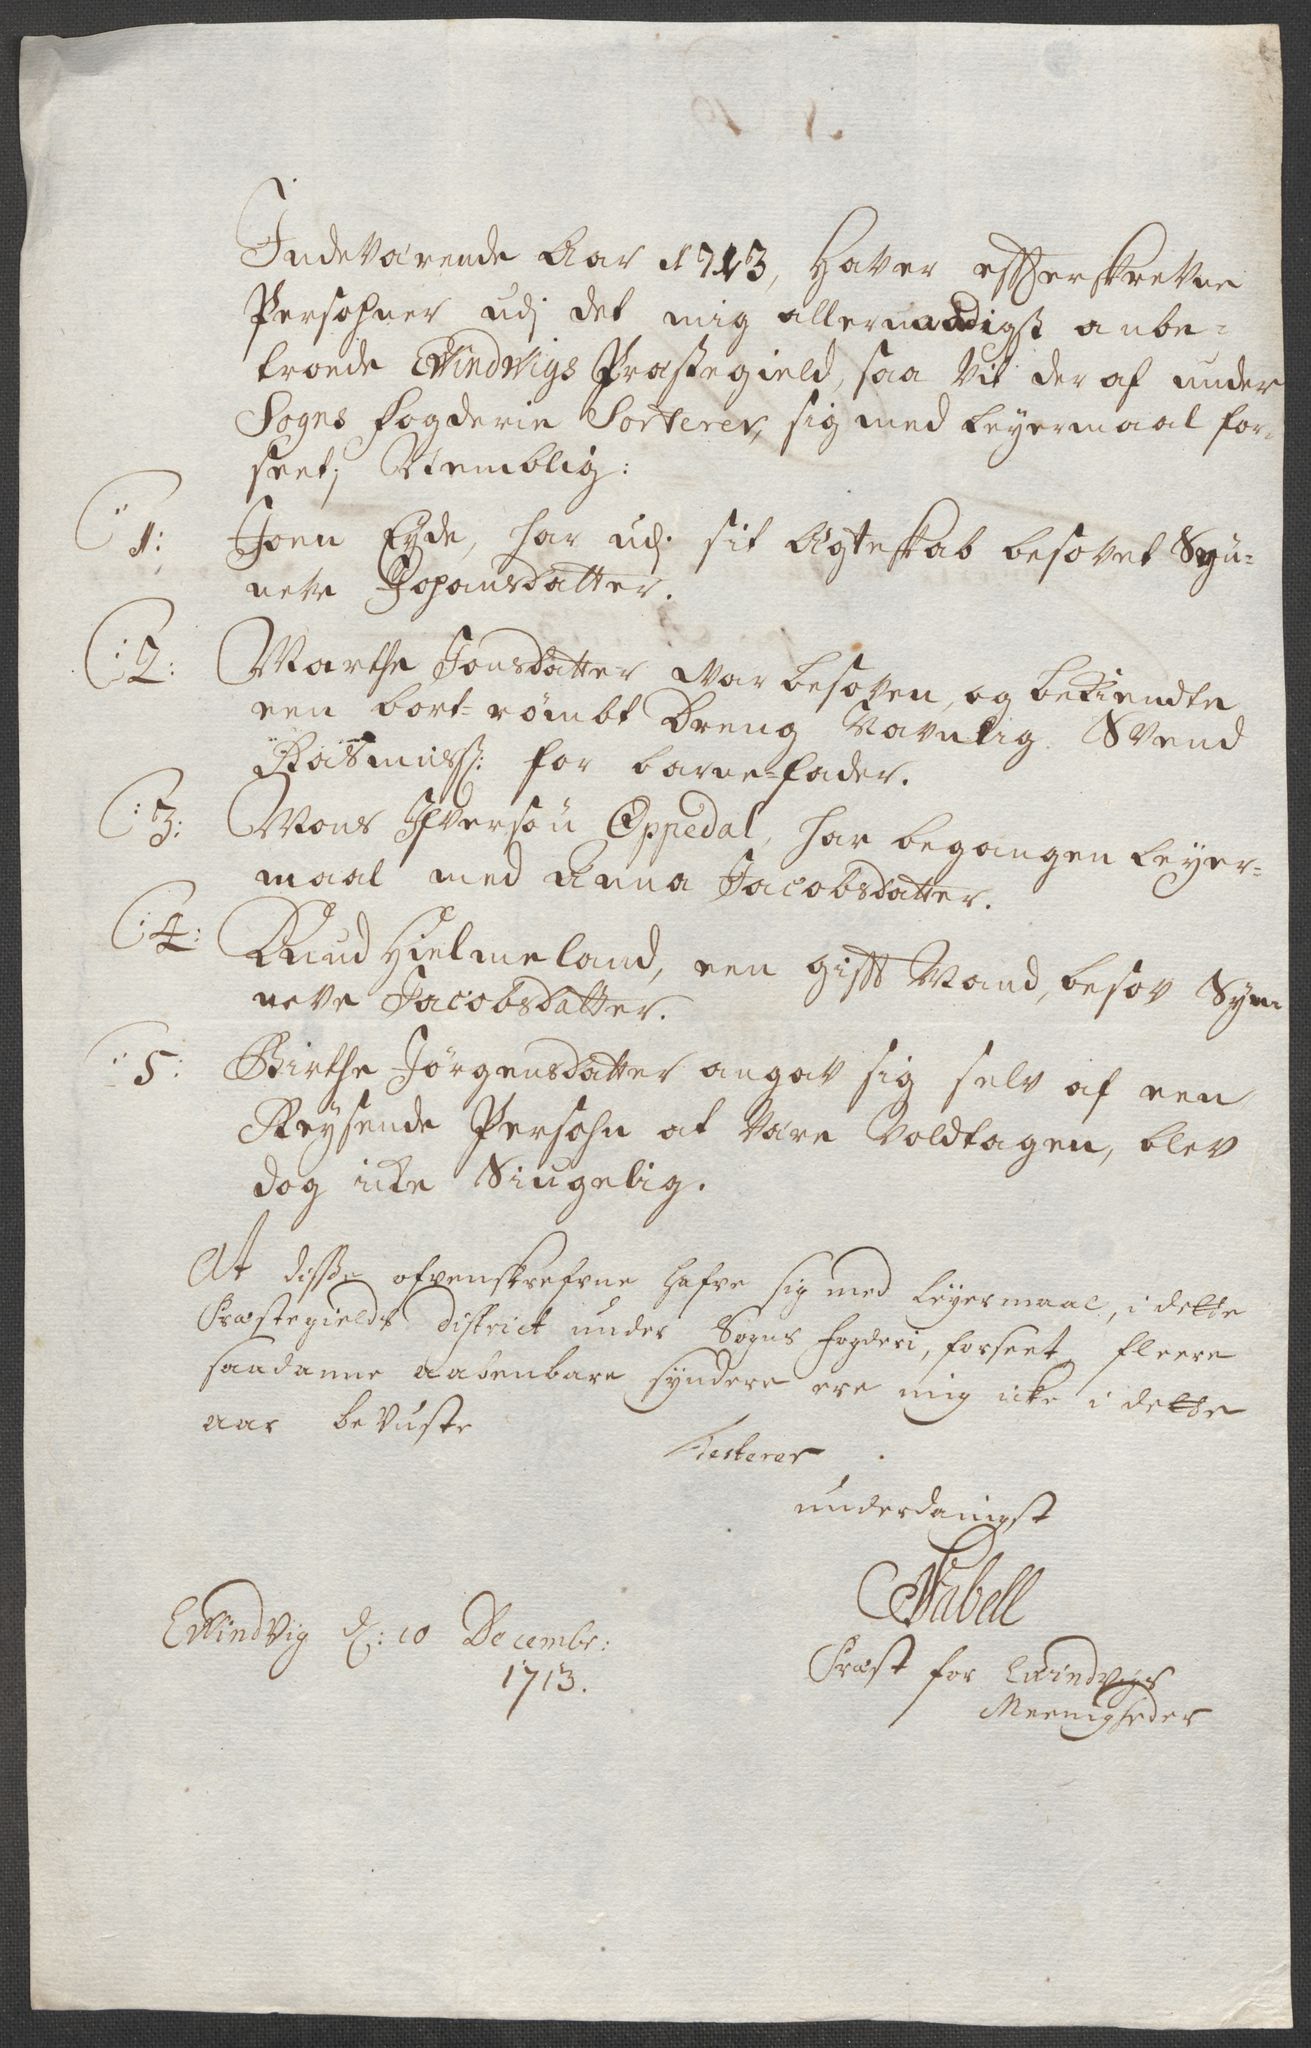 Indeværende Aar 1713, Haver efftterskrevne
Persohner udj det mig allernaadigst anbe-
troede Evindvigs Præstegield, saa vit der af under
Sogns Fogderie Sorterer, sig med Leyermaal for-
seet; Nemblig:
1: Joen Eyde, har udj sit Ægteskab besovet Syn-
neve Johansdatter.
2: Marthe Jonsdatter var besoven, og bekiendte
een bort-römbt Dreng Navnlig Svend
Rasmuss: for barne-fader.
3: Mons Ifversøn Oppedal, har begangen Leyer-
maal med Anna Jacobsdatter.
4: Knud Hielmeland, een gifft Mand, besov Syn-
neve Jacobsdatter.
5: Birthe Jörgensdatter angav sig selv af een
Reysende Persohn at være Voldtagen, blev
dog icke Siugelig.
At disse ofvenskrefvne hafve sig med Leyermaal, i dette
Præstegields district under Sogns fogderi, forseet, fleere
saadanne aabenbare syndere ere mig icke i dette
aar bevuste
Testerer
underdanigst
Tabell
Evindvig d: 10 Decembr:
1713.
Præst for Evindvigs
Meenigheder